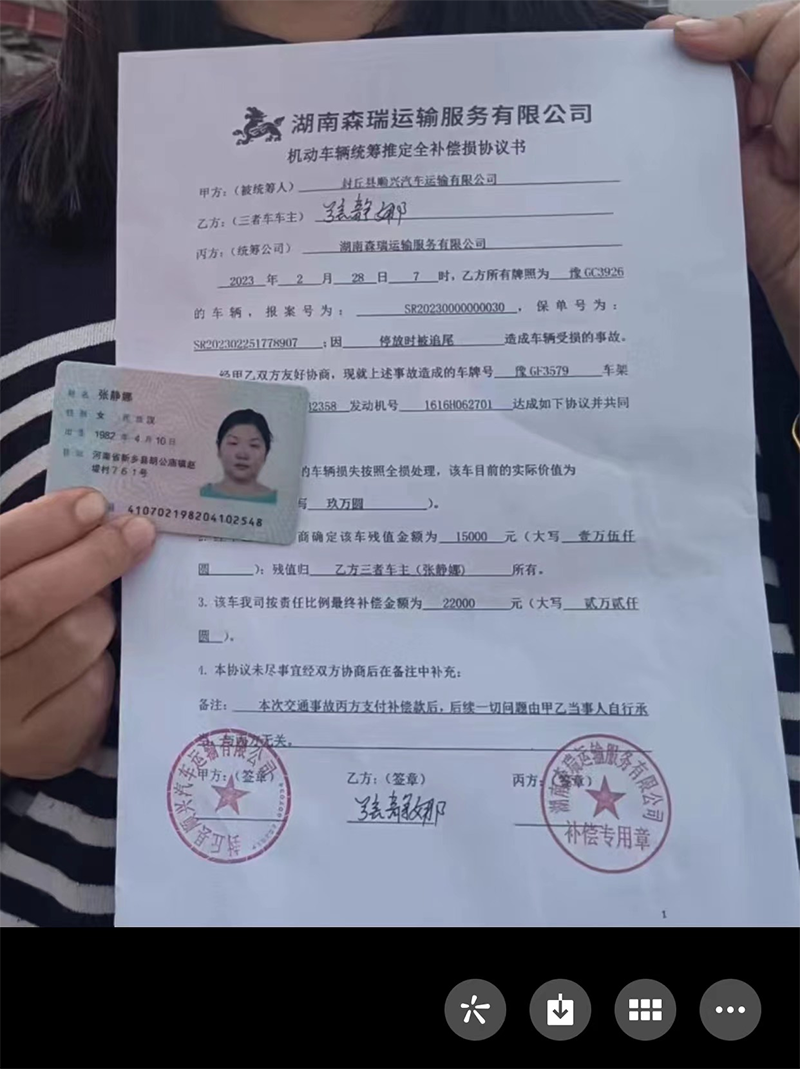 湖南森瑞运输服务有限公司
机动车辆统筹推定全补偿损协议书
甲方：（被统筹人） 封丘县顺兴汽车运输有限公司
乙方：（三者车车主） 张静娜
丙方：（统筹公司） 湖南森瑞运输服务有限公司
2023 年 2 月 28 日 7 时，乙方所有牌照为 豫GC3926
的车辆，报案号为： SR20230000000030 ，保单号为：
SR202302251778907 ；因 停放时被追尾 造成车辆受损的事故。
经甲乙双方友好协商，现就上述事故造成的车牌号 豫GF3579 车架
12358 发动机号 1616H062701 达成如下协议并共同
的车辆损失按照全损处理，该车目前的实际价值为
写 玖万圆 ）。
商确定该车残值金额为 15000 元（大写 壹万伍仟
圆 ）：残值归 乙方三者车主（张静娜） 所有。
3. 该车我司按责任比例最终补偿金额为 22000 元（大写 贰万贰仟
圆 ）。
4. 本协议未尽事宜经双方协商后在备注中补充：
备注： 本次交通事故丙方支付补偿款后，后续一切问题由甲乙当事人自行承
与丙方无关。
甲方：（签章） 乙方：（签章） 丙方：（签章）
张静娜
封丘县顺兴汽车运输有限公司
湖南森瑞运输服务有限公司
补偿专用章
1
姓名 张静娜
性别 女 民族 汉
出生 1982 年 4 月 10 日
住址 河南省新乡县朗公庙镇赵
堤村761号
410702198204102548